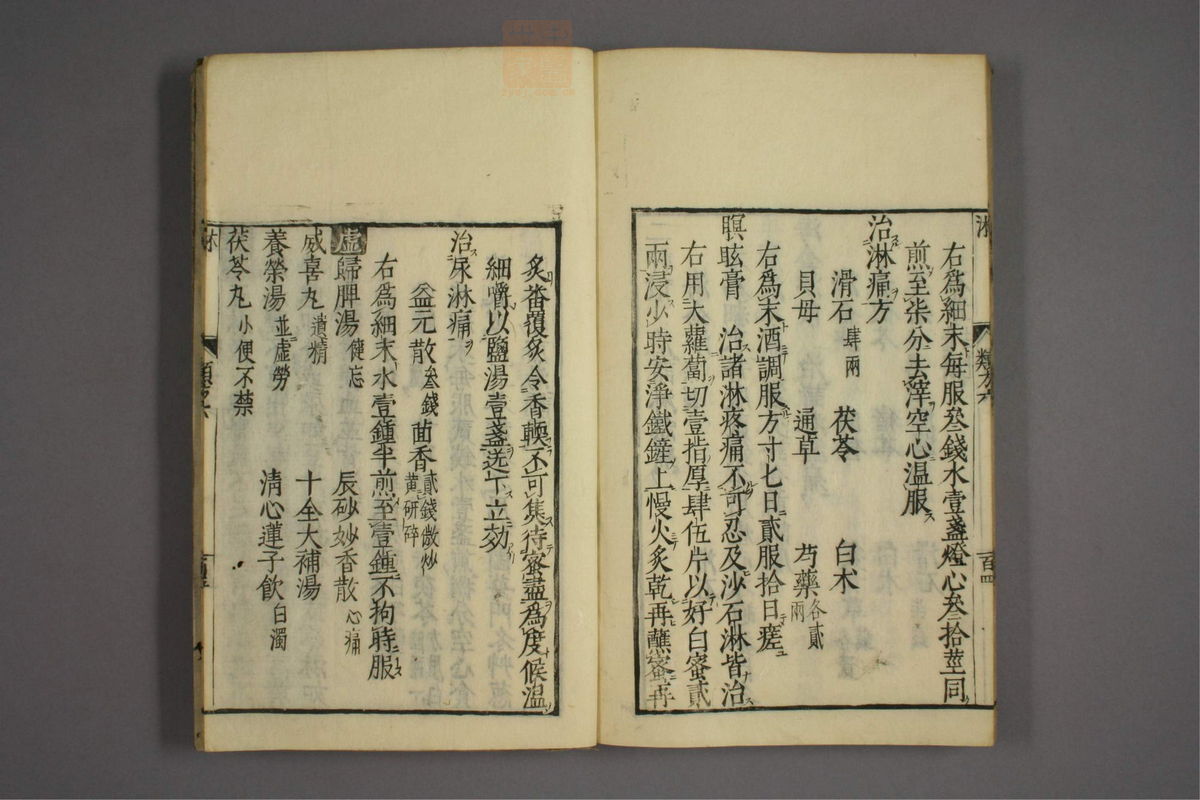 右爲細末每服叄錢水壹盞燈心叄拾莖同
煎至柒分去滓空心温服
治淋痛方
滑石肆兩 茯苓 白朮
貝母 通草 芍藥各貳兩
右爲末酒調服方寸七日貳服拾日瘥
瞑眩膏 治諸淋疼痛不可忍及沙石淋皆治
右用大蘿蔔切壹指厚肆伍片以好白蜜貳
兩浸少時安淨鐵鏟上慢火炙乾再蘸蜜再
炙番覆炙令香軟不可焦待蜜盡爲度候温
細嚼以鹽湯壹盞送下立効
治尿淋痛
益元散叄錢 茴香貳錢微炒黄研碎
右爲細末水壹鍾半煎至壹鍾不拘時服
虛歸脾湯健忘 辰砂妙香散心痛
威喜丸遺精 十全大補湯
養榮湯並虛勞 清心蓮子飲白濁
茯苓丸小便不禁